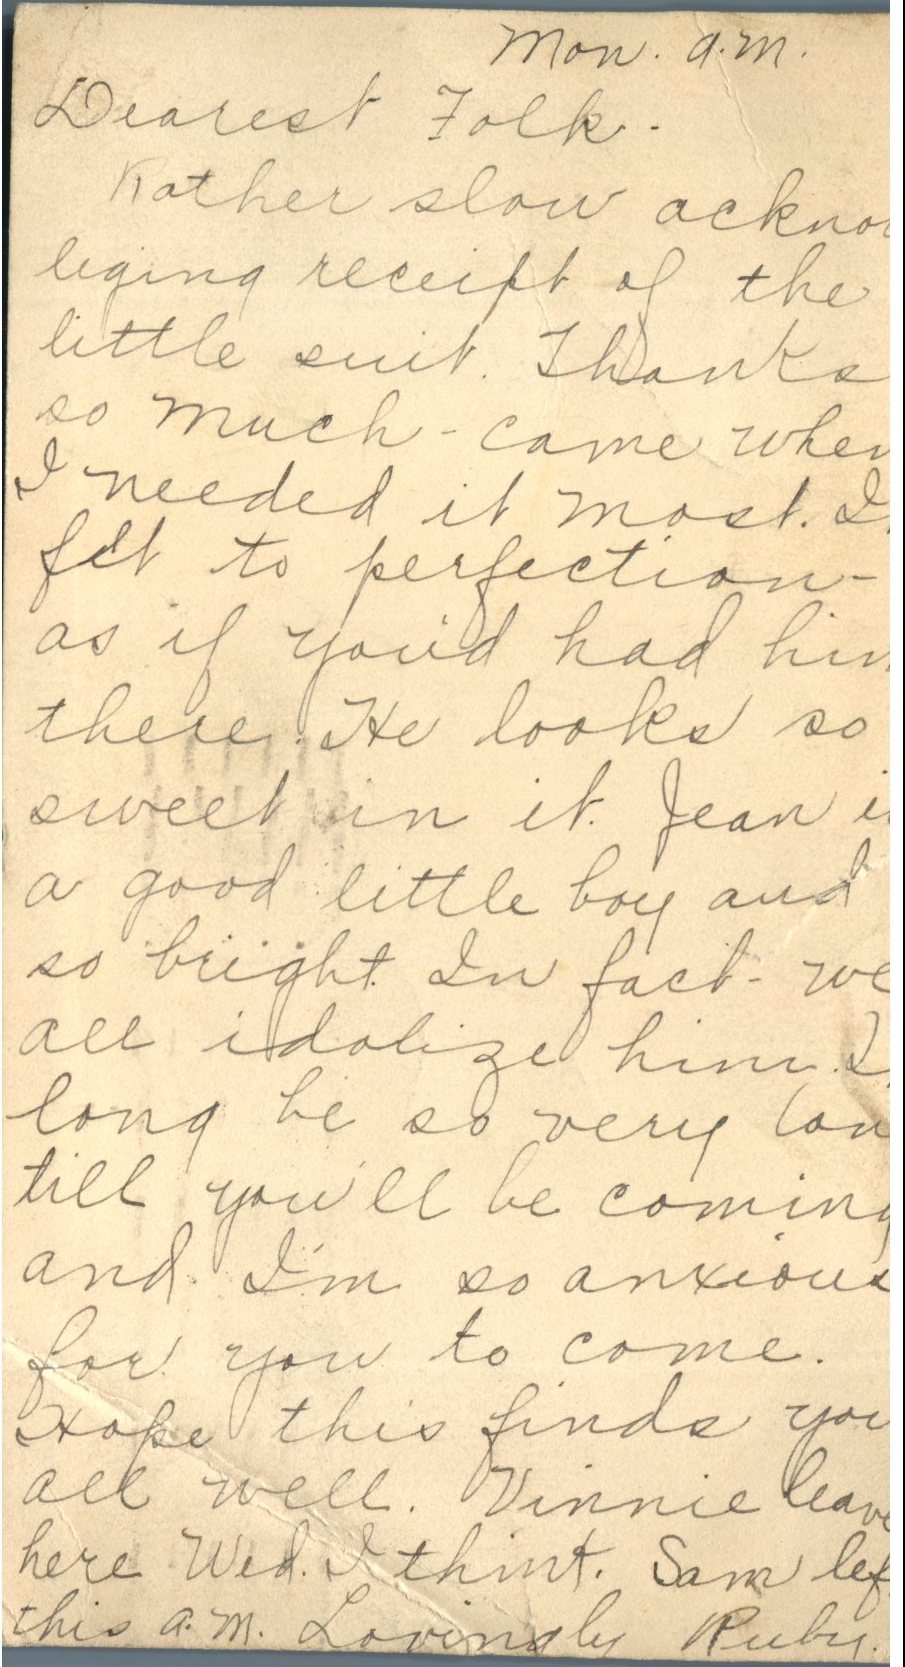 Mon. a.m.
Dearest Folk.
Rather slow acknow
leging receift of the
little suit. Thanks
so much - came when
I needed it most. I
fit to perfection -
as if you'd had him
there. He looks so
sweet in it. Jean i
a good little boy and
so bright. In fact - we
all idolize him. I
long be so very lon
till you'll be coming
and I'm so anxious
for you to come.
Hope this finds you
all well. Vinnie leave
here Wed. I think. Sam lef
this a.m. Lovingly Ruby.